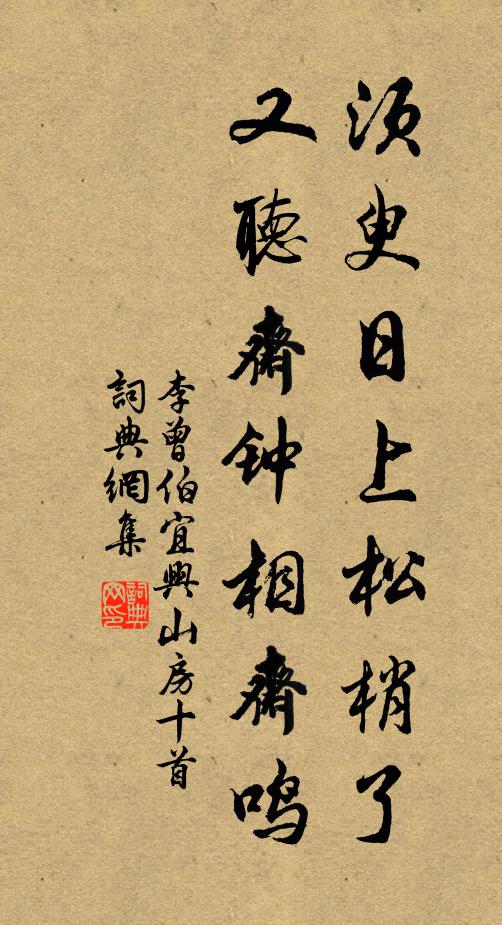 须臾日上松梢了
又聽齋钟相齋鸣
李曾伯宜興山房十首
詞典網集
詞典网印